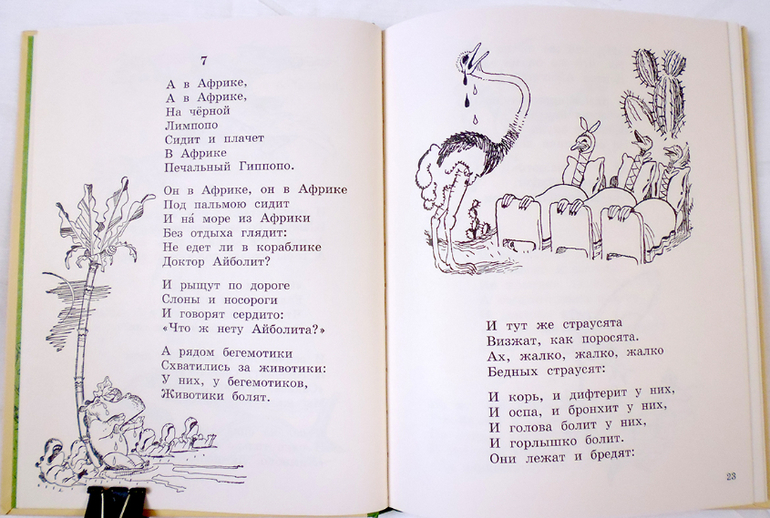 7
А в Африке,
А в Африке,
На чёрной
Лимпопо
Сидит и плачет
В Африке
Печальный Гиппопо.
Он в Африке, он в Африке
Под пальмою сидит
И на́ море из Африки
Без отдыха глядит:
Не едет ли в кораблике
Доктор Айболит?
И рыщут по дороге
Слоны и носороги
И говорят сердито:
«Что ж нету Айболита?»
А рядом бегемотики
Схватились за животики:
У них, у бегемотиков,
Животики болят.
И тут же страусята
Визжат, как поросята.
Ах, жалко, жалко, жалко
Бедных страусят:
И корь, и дифтерит у них,
И оспа, и бронхит у них,
И голова болит у них,
И горлышко болит.
Они лежат и бредят:
23